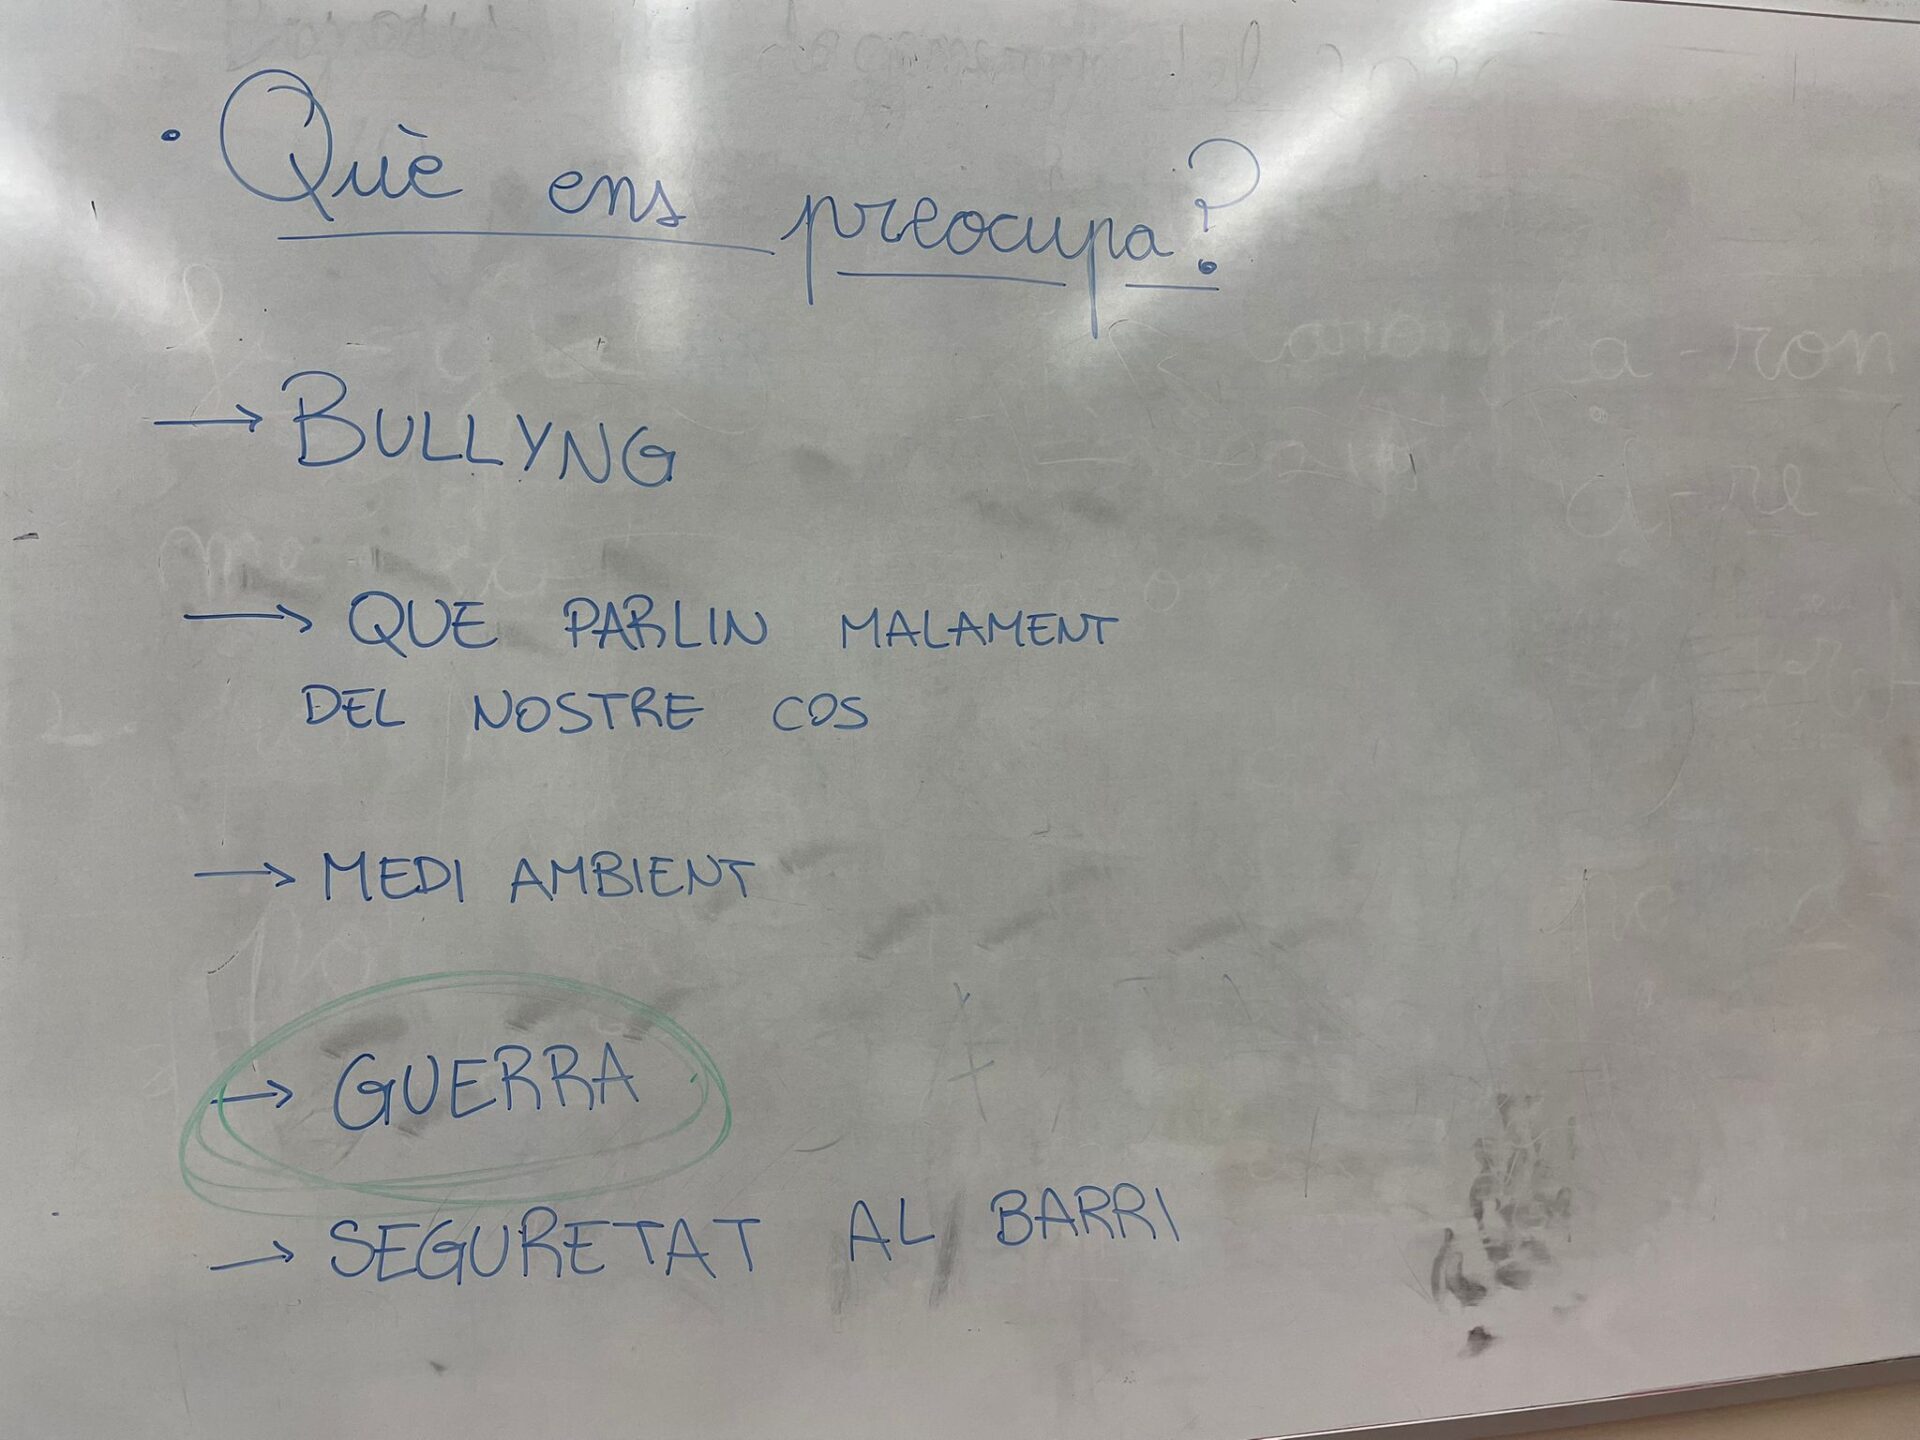 • Què ens preocupa?
→ BULLYNG
→ QUE PARLIN MALAMENT
DEL NOSTRE COS
→ MEDI AMBIENT
→ GUERRA
→ SEGURETAT AL BARRI